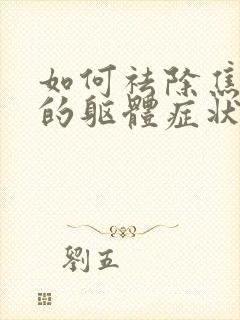 如何祛除焦
的躯體症狀
劉五